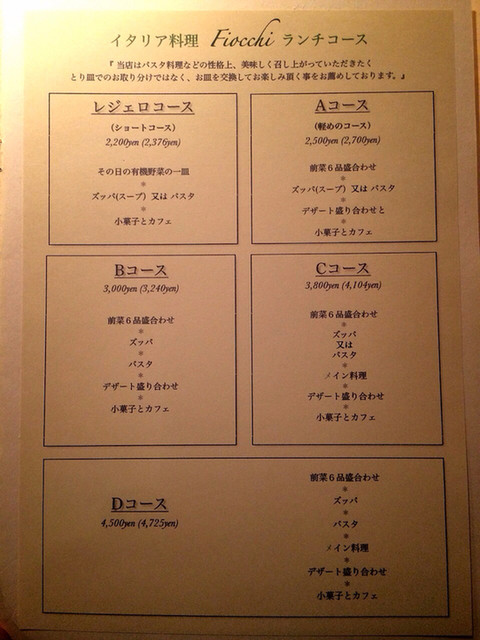 イタリア料理 Fiocchi ランチコース
『 当店はパスタ料理などの性格上、美味しく召し上がっていただきたく
とり皿でのお取り分けではなく、お皿を交換してお楽しみ頂く事をお薦めしております。』
レジェロコース
(ショートコース)
2,200yen (2,376yen)
その日の有機野菜の一皿
*
ズッパ(スープ) 又は パスタ
*
小菓子とカフェ
Aコース
(軽めのコース)
2,500yen (2,700yen)
前菜６品盛合わせ
*
ズッパ(スープ) 又は パスタ
*
デザート盛り合わせと
*
小菓子とカフェ
Bコース
3,000yen (3,240yen)
前菜６品盛合わせ
*
ズッパ
*
パスタ
*
デザート盛り合わせ
*
小菓子とカフェ
Cコース
3,800yen (4,104yen)
前菜６品盛合わせ
*
ズッパ
又は
パスタ
*
メイン料理
*
デザート盛り合わせ
*
小菓子とカフェ
Dコース
4,500yen (4,725yen)
前菜６品盛合わせ
*
ズッパ
*
パスタ
*
メイン料理
*
デザート盛り合わせ
*
小菓子とカフェ